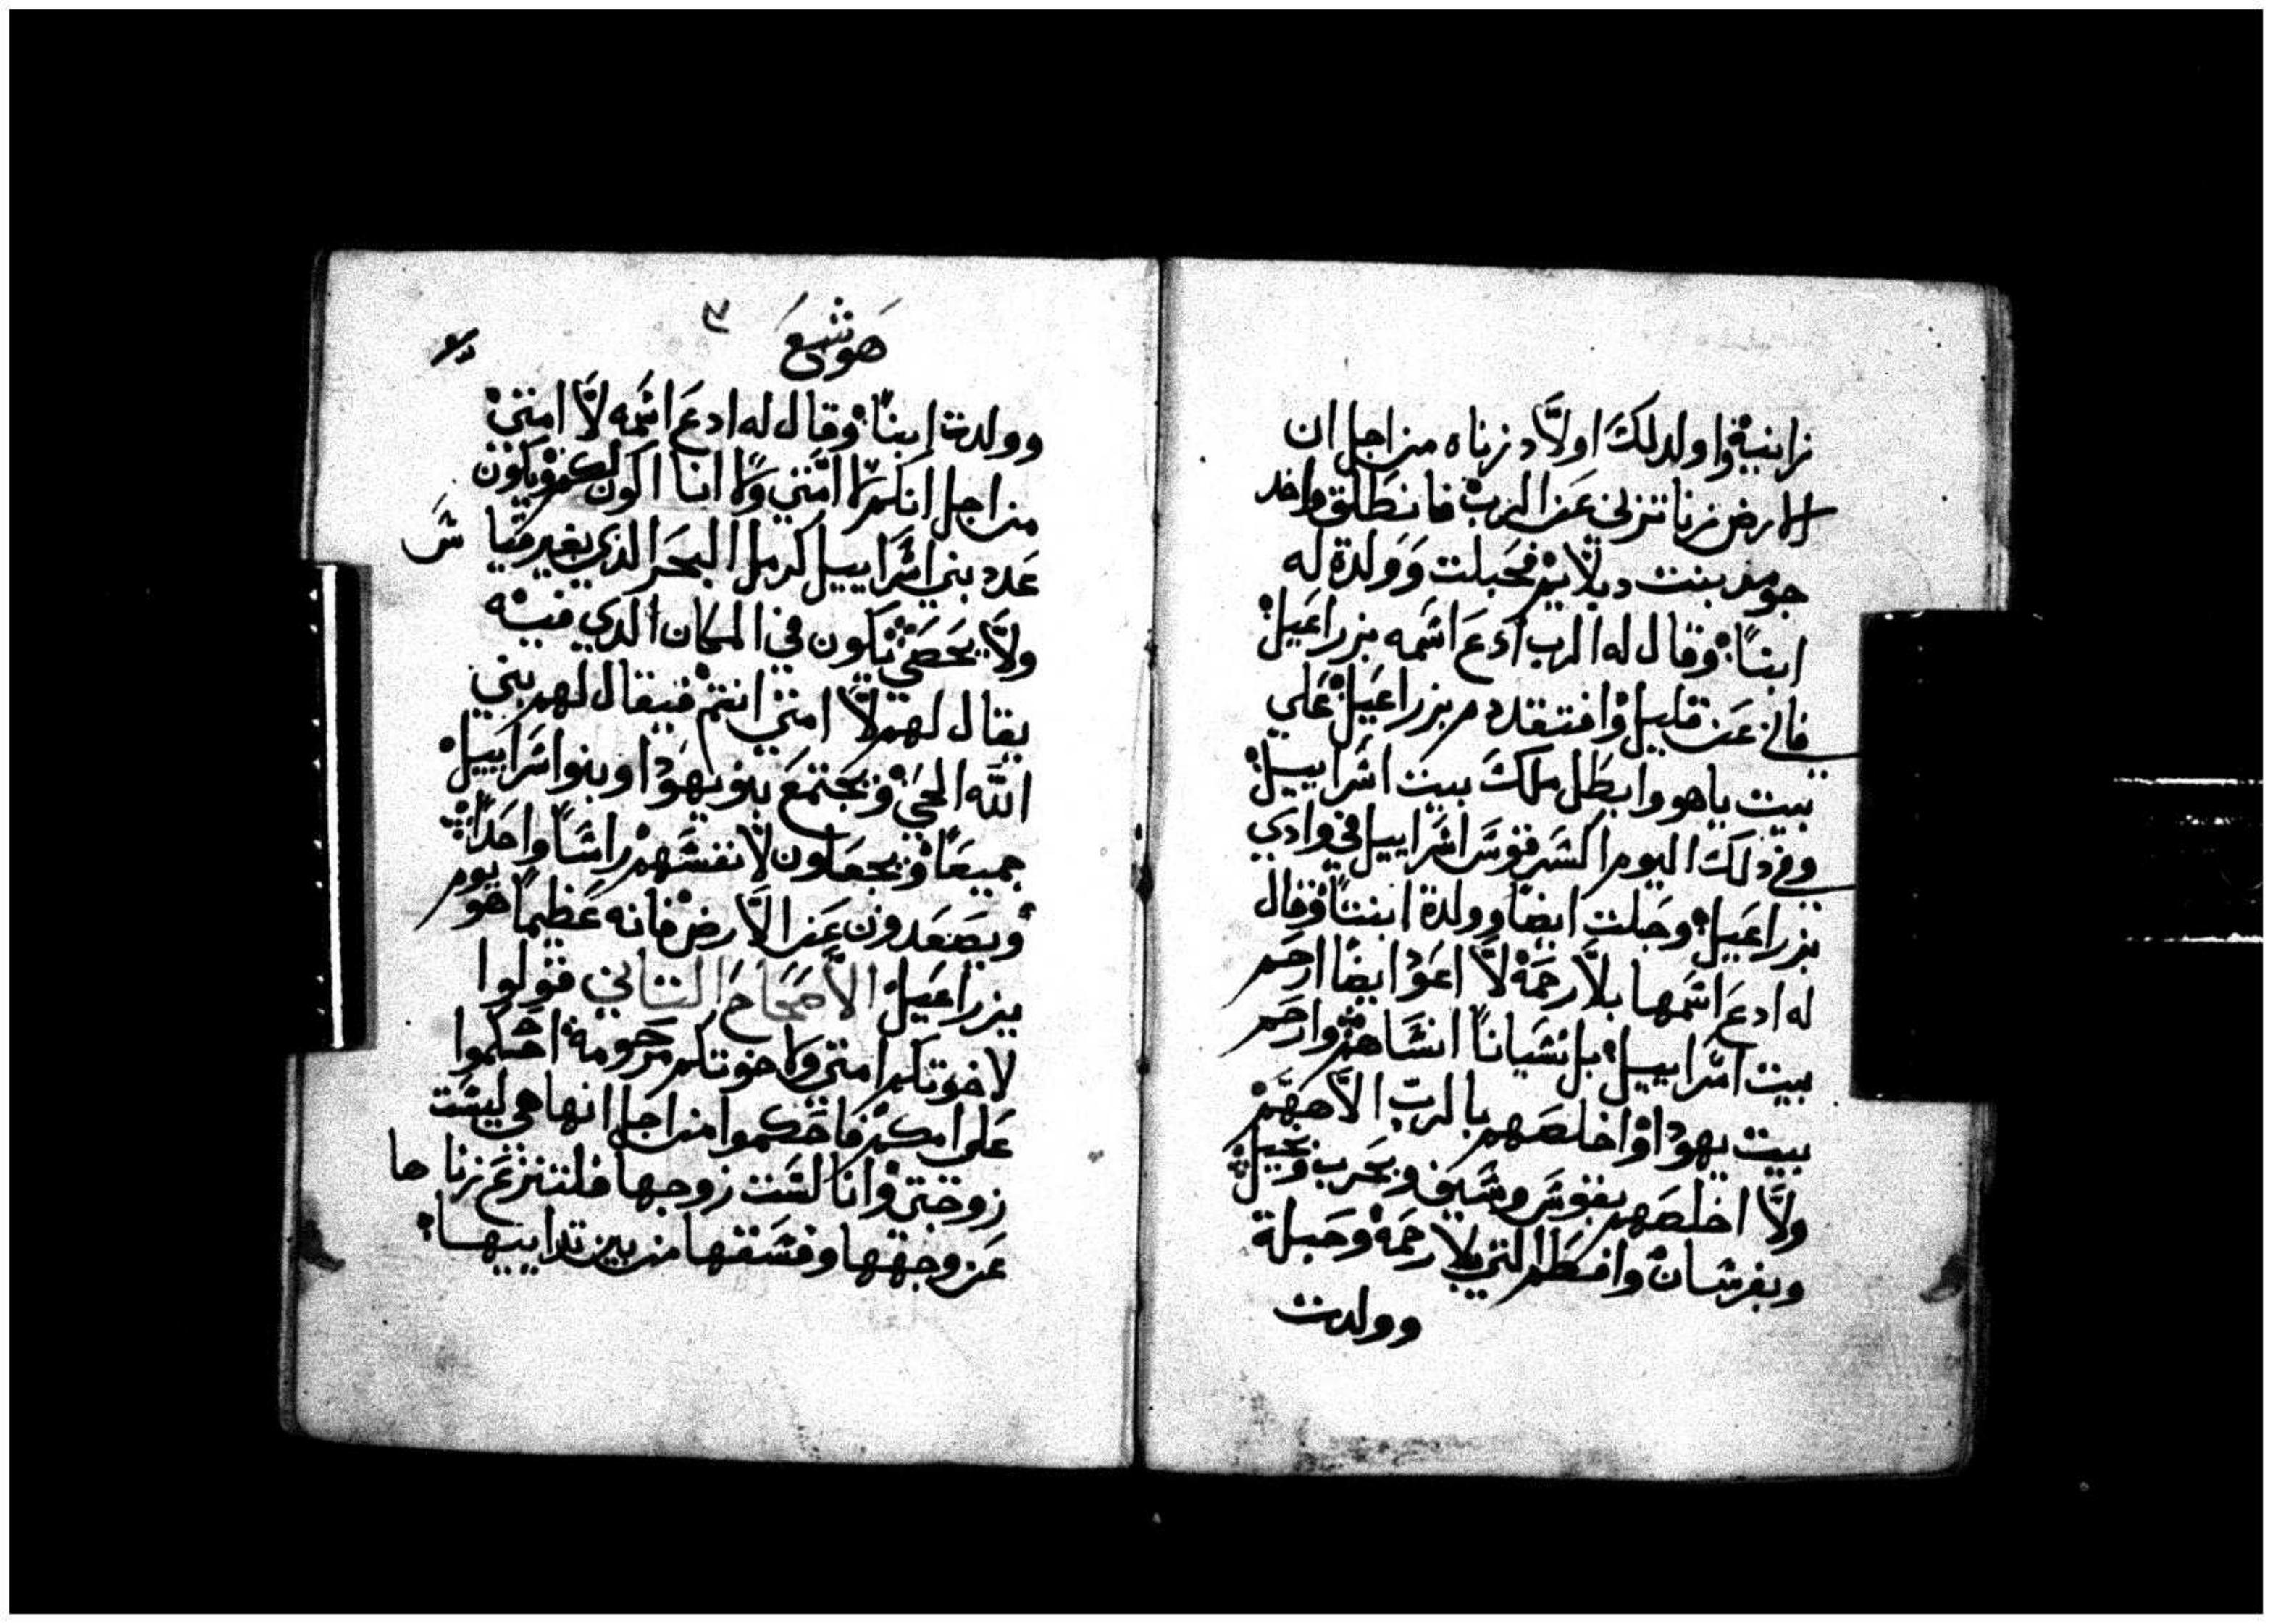 زانية واولد لك اولاد زناه من اجل ان
الارض زنا تزني عن الرب فانطلق واخد
جومر بنت دبلايم فحبلت وولدة له
ابنا وقال له الرب ادع اسمه يزراعيل
فاني عن قليل وافتقد دم يزراعيل علي
بيت ياهو وابطل ملك بيت اسراييل
وفي دلك اليوم اكسر قوس اسراييل في وادي
يزراعيل وحبلت ايضا وولدة ابنتا وقال
له ادع اسمها بلا رحمة لا اعود ايضا ارحم
بيت اسراييل بل نسيانا انساهم وارحم
بيت يهودا واخلصهم بالرب الاههم
ولا اخلصهم بقوس وسيف وبحرب وبخيل
وبفرسان وافطم التي بلا رحمة وحبلة
وولدت
هوشع
وولدت ابنا وقال له ادع اسمه لا امتي
من اجل انكم لا امتي ولا انا اكون لكم ويكون
عدد بني اسراييل كرمل البحر الدي بغير قيا س
ولا يحصي يكون في المكان الدي فيه
يقال لهم لا امتي انتم فيقال لهم بني
الله الحي ويجتمع بنو يهودا وبنو اسراييل
جميعا ويجعلون لانفسهم راسا واحدا
ويصعدون عن الارض فانه عظيما هو يوم
يزراعيل الاصحاح التاني قولوا
لاخوتكم امتي ولاخوتكم مرحومة احكموا
علي امكم فاحكموا من اجل انها هي ليست
زوجتي وانا لست زوجها فلتنزع زنا ها
عن وجهها وفسقها من بين تداييها